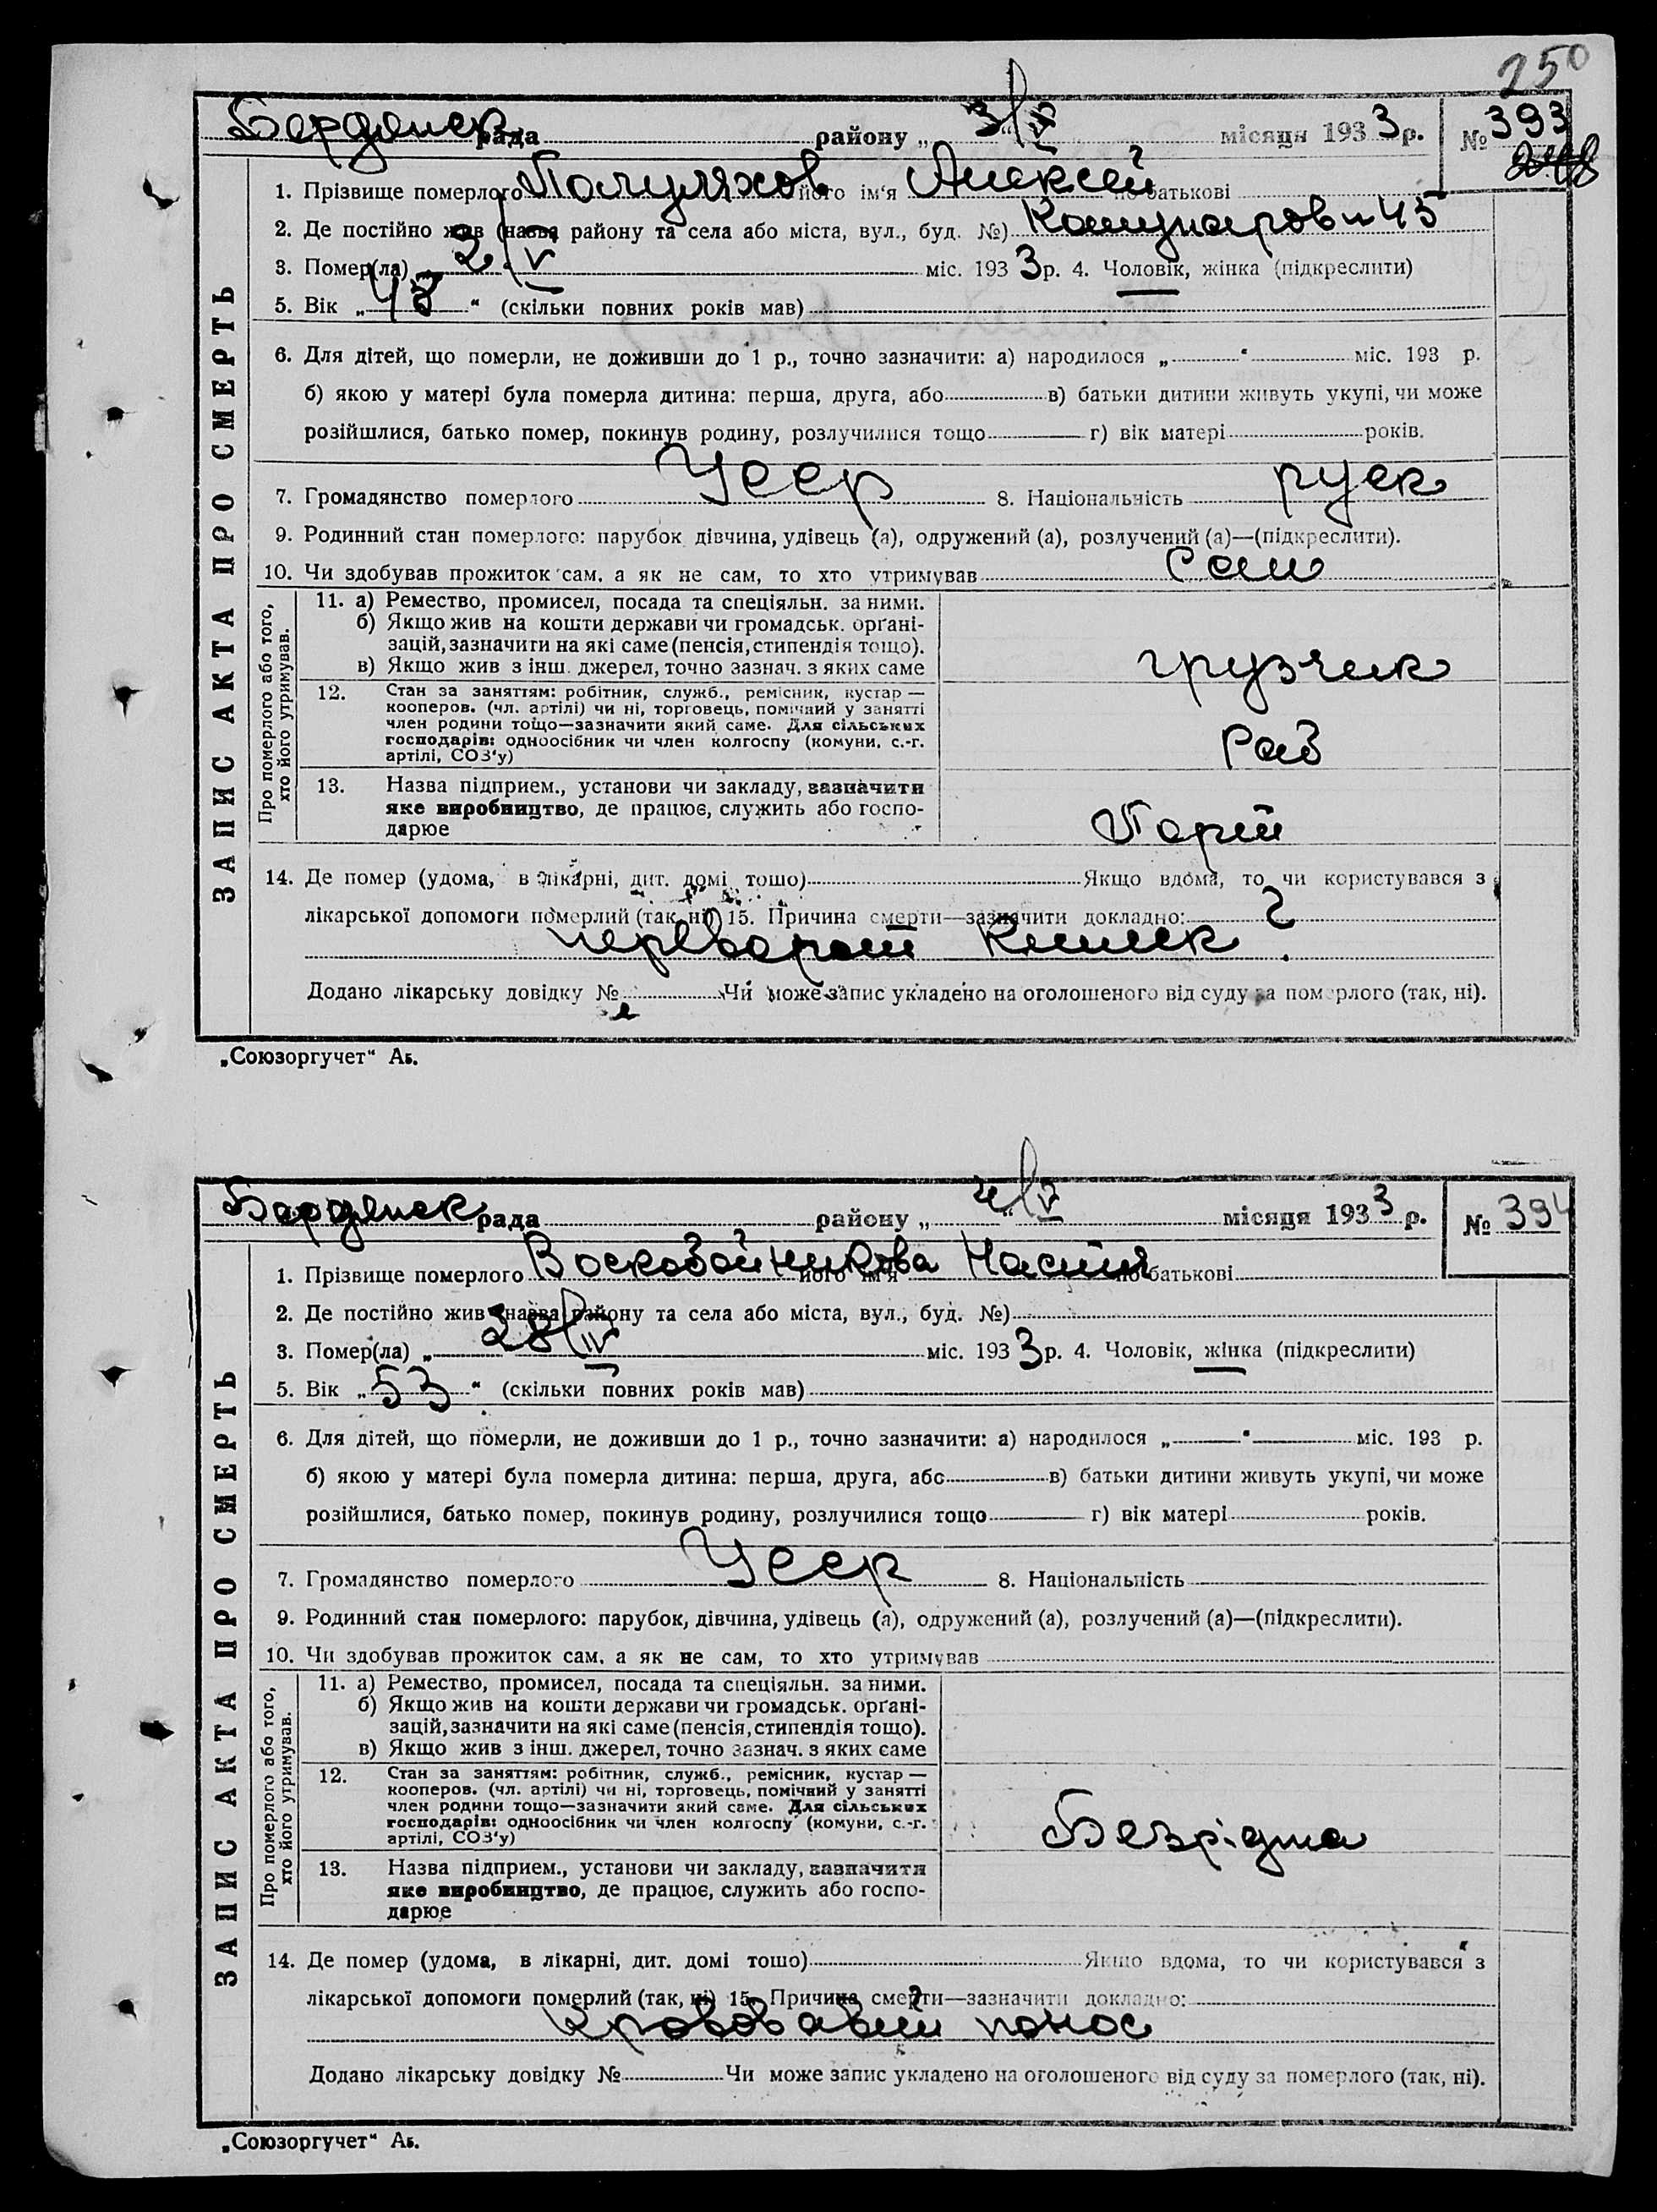 250
Бердянск рада району „3/V місяця 1933 р. № 393
248
1. Прізвище померлого Полуляхов його ім'я Алексей по батькові
2. Де постійно жив (назва району та села або міста, вул., буд. №) 45
3. Помер(ла) „2/V міс. 1933 р. 4. Чоловік, жінка (підкреслити)
5. Вік „48“ (скільки повних років мав)
6. Для дітей, що померли, не доживши до 1 р., точно зазначити: а) народилося „ “ міс. 193 р.
б) якою у матері була померла дитина: перша, друга, або в) батьки дитини живуть укупі, чи може
розійшлися, батько помер, покинув родину, розлучилися тощо г) вік матері років.
7. Громадянство померлого Усср 8. Національність руск
9. Родинний стан померлого: парубок, дівчина, удівець (а), одружений (а), розлучений (а)—(підкреслити).
10. Чи здобував прожиток сам, а як не сам, то хто утримував Сам
ЗАПИС АКТА ПРО СМЕРТЬ
Про померлого або того, хто його утримував.
11. а) Ремество, промисел, посада та спеціяльн. за ними.
б) Якщо жив на кошти держави чи громадськ. органі-
зацій, зазначити на які саме (пенсія, стипендія тощо).
в) Якщо жив з інш. джерел, точно зазнач. з яких саме
грузчик
12. Стан за заняттям: робітник, служб., ремісник, кустар —
кооперов. (чл. артілі) чи ні, торговець, помічний у занятті
член родини тощо—зазначити який саме. Для сільських
господарів: одноосібник чи член колгоспу (комуни, с.-г.
артілі, СОЗ'у)
Раб
13. Назва підприєм., установи чи закладу, зазначити
яке виробництво, де працює, служить або госпо-
дарює
Порт
14. Де помер (удома, в лікарні, дит. домі тощо) Якщо вдома, то чи користувався з
лікарської допомоги померлий (так, ні) 15. Причина смерти—зазначити докладно:
переворот кишек
Додано лікарську довідку № Чи може запис укладено на оголошеного від суду за померлого (так, ні).
„Союзоргучет“ Аб.
Бердянск рада району „4/V місяця 1933 р. № 394
1. Прізвище померлого Воскобойникова його ім'я Настя по батькові
2. Де постійно жив (назва району та села або міста, вул., буд. №)
3. Помер(ла) „28/IV міс. 1933 р. 4. Чоловік, жінка (підкреслити)
5. Вік „53“ (скільки повних років мав)
6. Для дітей, що померли, не доживши до 1 р., точно зазначити: а) народилося „ “ міс. 193 р.
б) якою у матері була померла дитина: перша, друга, або в) батьки дитини живуть укупі, чи може
розійшлися, батько помер, покинув родину, розлучилися тощо г) вік матері років.
7. Громадянство померлого Усср 8. Національність
9. Родинний стан померлого: парубок, дівчина, удівець (а), одружений (а), розлучений (а)—(підкреслити).
10. Чи здобував прожиток сам, а як не сам, то хто утримував
ЗАПИС АКТА ПРО СМЕРТЬ
Про померлого або того, хто його утримував.
11. а) Ремество, промисел, посада та спеціяльн. за ними.
б) Якщо жив на кошти держави чи громадськ. органі-
зацій, зазначити на які саме (пенсія, стипендія тощо).
в) Якщо жив з інш. джерел, точно зазнач. з яких саме
12. Стан за заняттям: робітник, служб., ремісник, кустар —
кооперов. (чл. артілі) чи ні, торговець, помічний у занятті
член родини тощо—зазначити який саме. Для сільських
господарів: одноосібник чи член колгоспу (комуни, с.-г.
артілі, СОЗ'у)
Безрідна
13. Назва підприєм., установи чи закладу, зазначити
яке виробництво, де працює, служить або госпо-
дарює
14. Де помер (удома, в лікарні, дит. домі тощо) Якщо вдома, то чи користувався з
лікарської допомоги померлий (так, ні) 15. Причина смерти—зазначити докладно:
Кровавый понос
Додано лікарську довідку № Чи може запис укладено на оголошеного від суду за померлого (так, ні).
„Союзоргучет“ Аб.